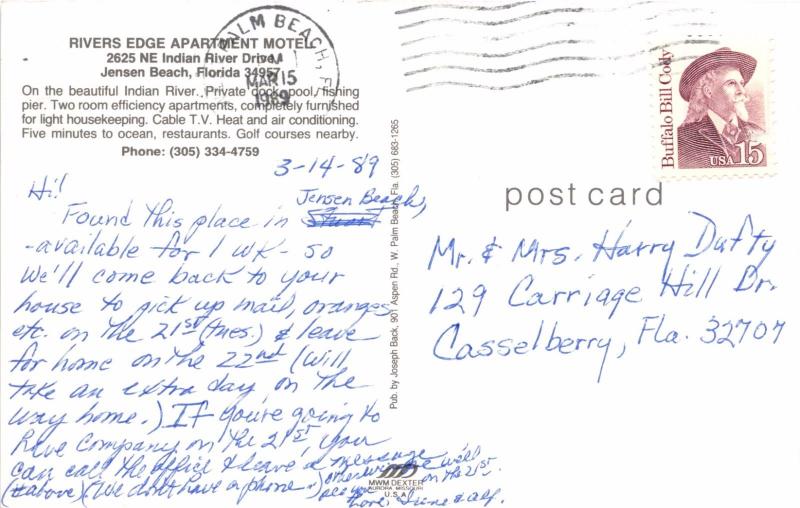 RIVERS EDGE APARTMENT MOTEL
2625 NE Indian River Drive
Jensen Beach, Florida 34957
On the beautiful Indian River. Private dock, pool, fishing
pier. Two room efficiency apartments, completely furnished
for light housekeeping. Cable T.V. Heat and air conditioning.
Five minutes to ocean, restaurants. Golf courses nearby.
Phone: (305) 334-4759
PALM BEACH, FL
PM
MAR 15
1989
3-14-89
Hi!
Jensen Beach,
Found this place in Stuart
-available for 1 wk - so
we'll come back to your
house to pick up mail, oranges,
etc. on the 21st (tues.) & leave
for home on the 22nd (Will
take an extra day on the
way home.) If you're going to
have company on the 21st, you
can call the office & leave a message
(above) (We don't have a phone.) otherwise we'll
see you on the 21st.
Love, June & Alf.
Pub. by Joseph Back, 901 Aspen Rd., W. Palm Beach, Fla. (305) 683-1265
MWM DEXTER
AURORA, MISSOURI
U.S.A.
Buffalo Bill Cody
USA 15
post card
Mr. & Mrs. Harry Dufty
129 Carriage Hill Dr.
Casselberry, Fla. 32707